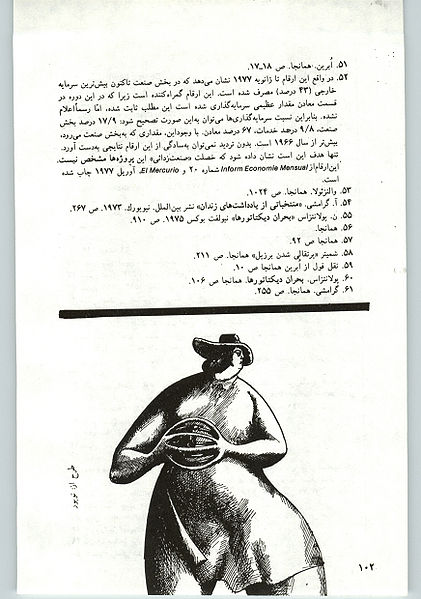 ۵۱. اُبرین. همانجا. ص ۱۸ـ۱۷.
۵۲. در واقع این ارقام تا ژانویه ۱۹۷۷ نشان می‌دهد که در بخش صنعت تاکنون بیش‌ترین سرمایه
خارجی (۴۳ درصد) مصرف شده است. این ارقام گمراه‌کننده است زیرا که در این دوره در
قسمت معادن مقدار عظیمی سرمایه‌گذاری شده است این مطلب ثابت شده، امّا رسماً اعلام
نشده. بنابراین نسبت سرمایه‌گذاری‌ها می‌توان به‌این صورت تصحیح شود: ۱۷/۹ درصد بخش
صنعت، ۹/۸ درصد خدمات، ۶۷ درصد معادن. با وجوداین، مقداری که به‌بخش صنعت می‌رود،
بیش‌تر از سال ۱۹۶۶ است. بدون تردید نمی‌توان به‌سادگی از این ارقام نتایجی به‌دست آورد.
تنها هدف این است نشان داده شود که خصلت «صنعت‌زدائی» این پروژه‌ها مشخص نیست.
این‌ارقام‌از Inform Economie Mensual شماره ۲۰ و El Mercurio، آوریل ۱۹۷۷ چاپ شده
است.
۵۳. والنزئولا. همانجا. ص ۱۰۲۴.
۵۴. آ. گرامشی. «منتخباتی از یادداشت‌های زندان» نشر بین‌الملل. نیویورك. ۱۹۷۳. ص ۲۶۷.
۵۵. ن. پولانتزاس «بحران دیکتاتورها» نیولفت بوکس ۱۹۷۵. ص ۹۱۰.
۵۶. همانجا.
۵۷. همانجا ص ۹۲.
۵۸. شمیتر «پرتقالی شدن برزیل» همانجا. ص ۲۱۱.
۵۹. نقل قول از اُبرین همانجا ص ۱۰.
۶۰. پولانتزاس. بحران دیکتاتورها. همانجا ص ۱۰۶.
۶۱. گرامشی. همانجا. ص ۲۵۵.
طرح از:
۱۰۲